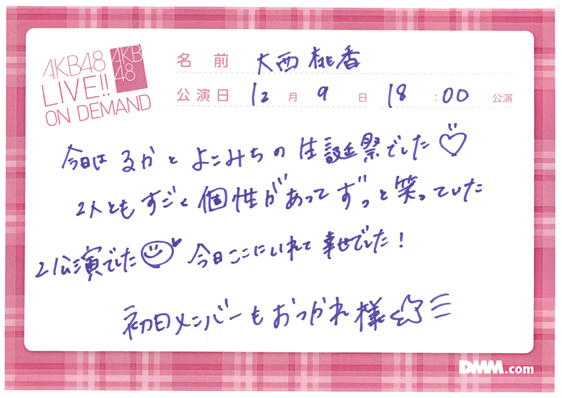 AKB48
LIVE!!
ON DEMAND
AKB
48
名前 大西桃香
公演日 12月9日 18:00公演
今日は るかと よこみちの 生誕祭でした♡
2人とも すごく 個性があって ずっと 笑っていた
2公演でした 今日ここにいれて 幸せでした!
初日メンバーも おつかれ様
DMM.com